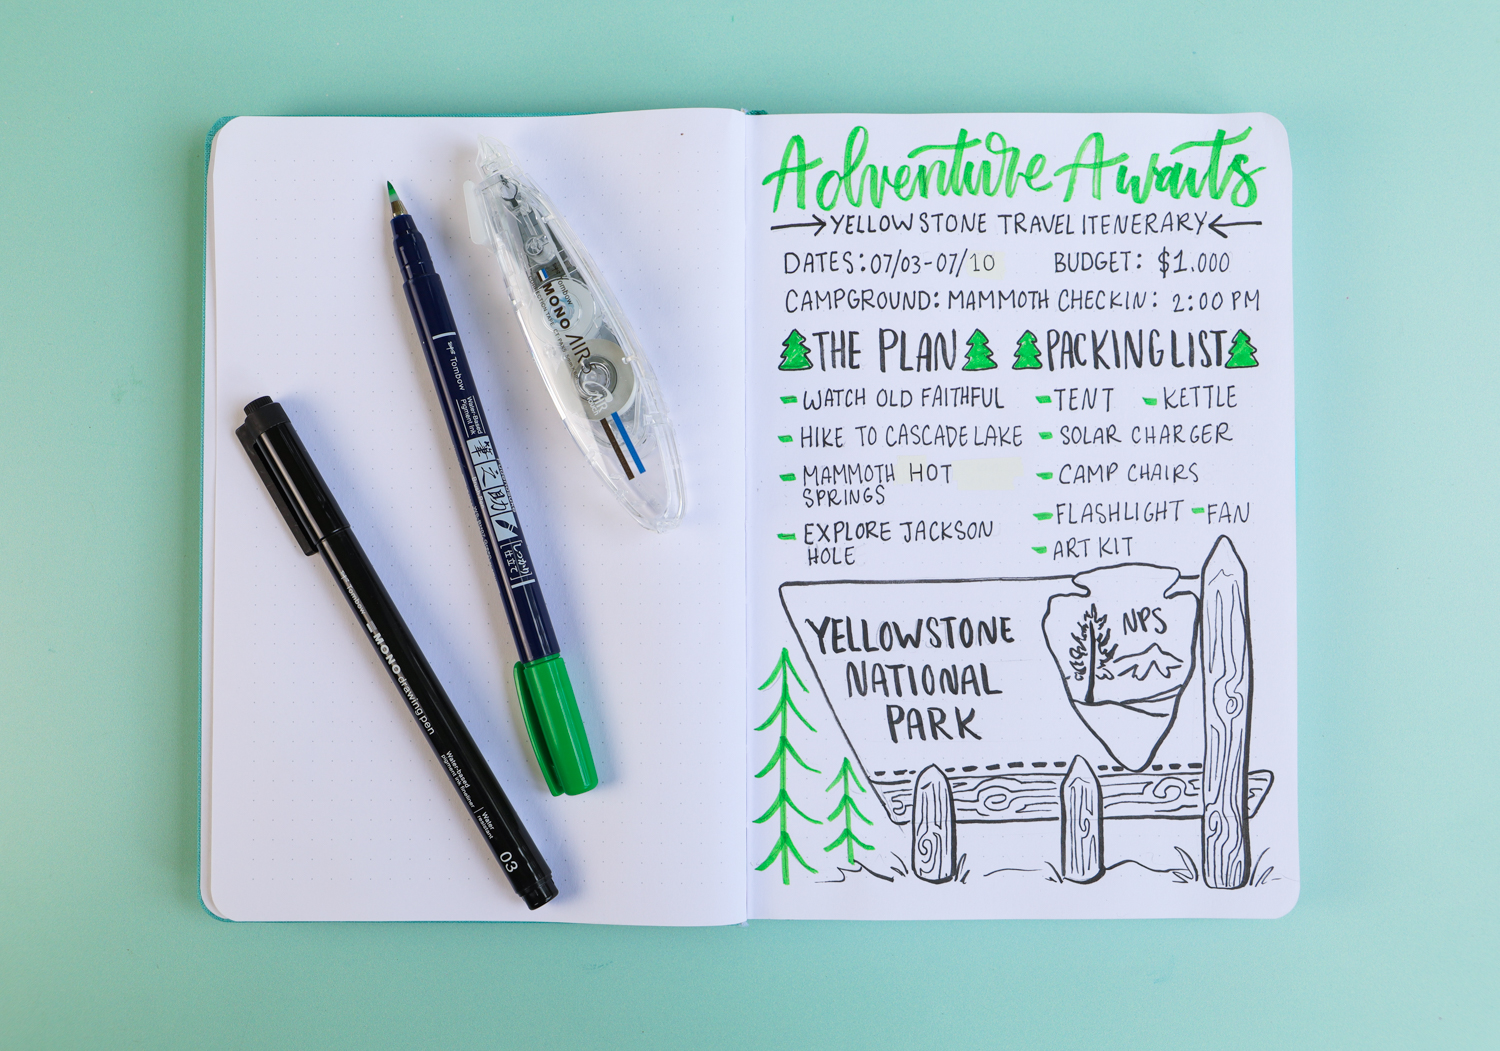 Adventure Awaits
YELLOWSTONE TRAVEL ITENERARY
DATES: 07/03-07/10 BUDGET: $1.000
CAMPGROUND: MAMMOTH CHECKIN: 2:00 PM
THE PLAN
- WATCH OLD FAITHFUL
- HIKE TO CASCADE LAKE
- MAMMOTH HOT
SPRINGS
- EXPLORE JACKSON
HOLE
PACKING LIST
- TENT - KETTLE
- SOLAR CHARGER
- CAMP CHAIRS
- FLASHLIGHT - FAN
- ART KIT
YELLOWSTONE
NATIONAL
PARK
NPS
Tombow
MONO AIR
Tombow
Water-Based
Pigment Ink
筆之助
しっかり
仕立て
Tombow
MONO drawing pen
Water-based
pigment ink fineliner
Water
resistant
03